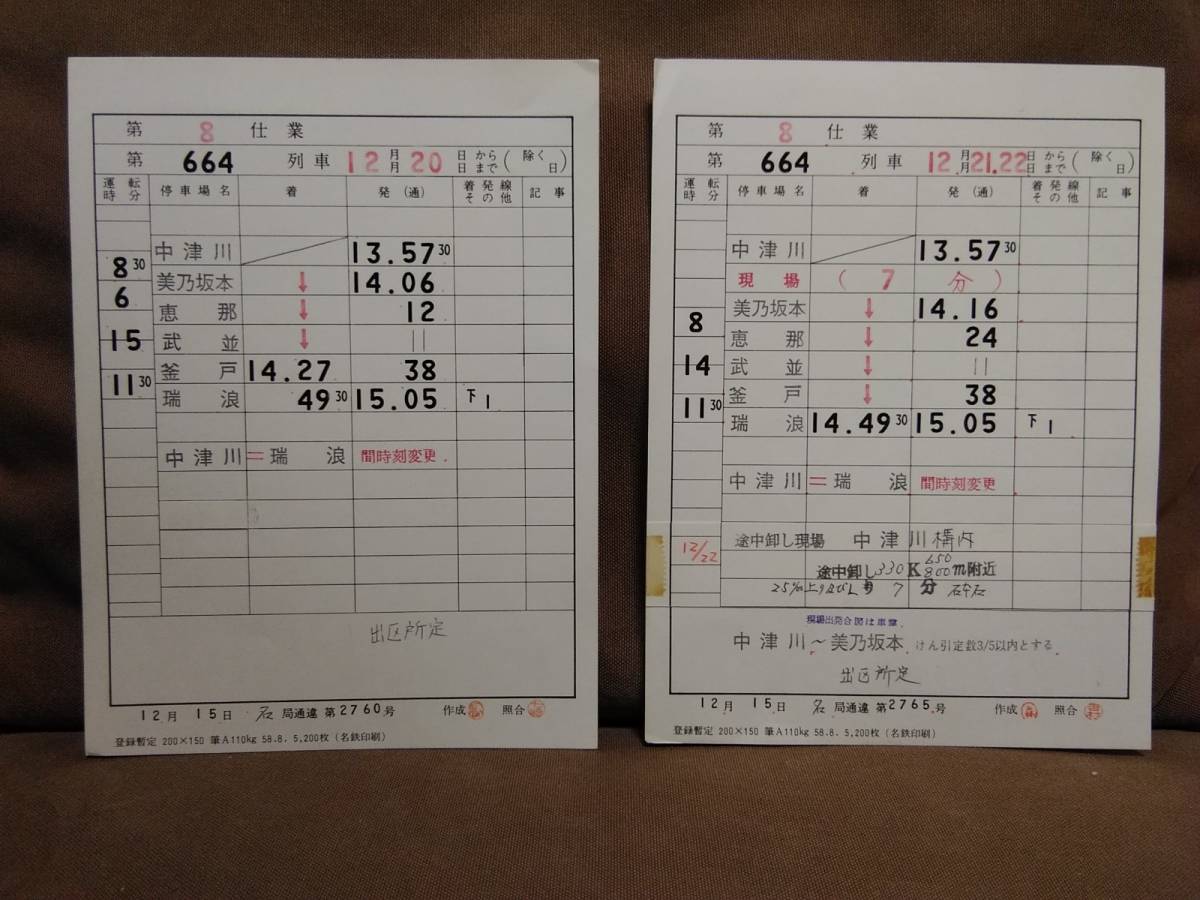 第 8 仕業
第 664 列車 12月月20日から日まで(除く日)
運転時分 停車場名 着 発(通) 着発線その他 記事
中津川 13.57 30
8 30
美乃坂本 ↓ 14.06
6
恵那 ↓ 12
15
武並 ↓ ||
釜戸 14.27 38
11 30
瑞浪 49 30 15.05 下1
中津川=瑞浪 間時刻変更
出区所定
12月 15日 名局通達 第2760号 作成 照合
登録暫定 200×150 筆A110kg 58.8. 5,200枚(名鉄印刷)
第 8 仕業
第 664 列車 12月月21.22日から日まで(除く日)
運転時分 停車場名 着 発(通) 着発線その他 記事
中津川 13.57 30
現場 (7分)
美乃坂本 ↓ 14.16
8
恵那 ↓ 24
14
武並 ↓ ||
釜戸 ↓ 38
11 30
瑞浪 14.49 30 15.05 下1
中津川=瑞浪 間時刻変更
12/22 途中卸し現場 中津川構内
途中卸し330K 650 800m附近
25‰上り 7分 砕石
現場出発合図は車掌.
中津川~美乃坂本 けん引定数3/5以内とする
出区所定
12月 15日 名局通達 第2765号 作成 照合
登録暫定 200×150 筆A110kg 58.8. 5,200枚(名鉄印刷)